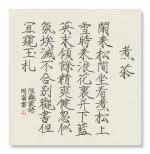 煮茶
閑來松間坐看煮松上
雪時於浪花裏并下藍
英末傾餘精爽健忽似
氛埃滅不合別觀書但
宜窺玉札
陸龜蒙詩